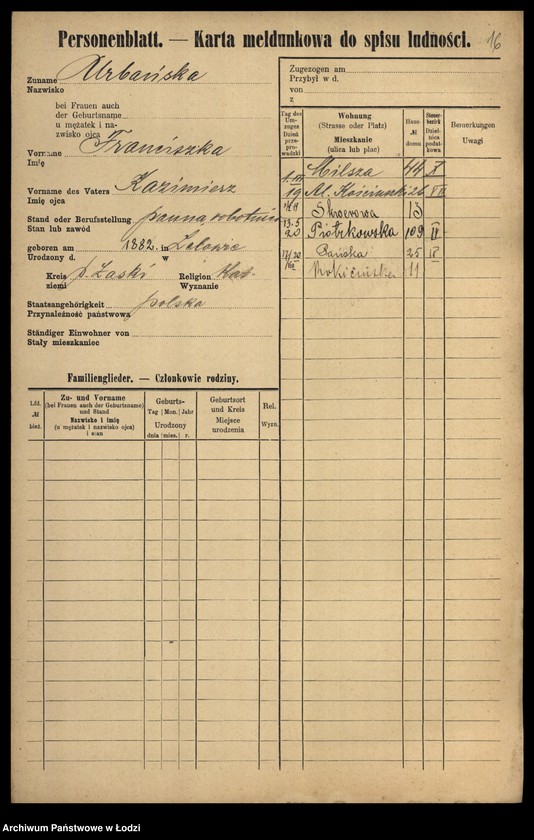 Personenblatt. — Karta meldunkowa do spisu ludności.
16
Zuname Urbańska
Nazwisko
bei Frauen auch
der Geburtsname
u mężatek i na-
zwisko ojca
Vorname Franciszka
Imię
Vorname des Vaters Kazimierz
Imię ojca
Stand oder Berufsstellung panna robotnica
Stan lub zawód
geboren am 1882. in
Urodzony d. w
Kreis p. Łaski Religion Kat.
ziemi Wyznanie
Staatsangehörigkeit polska
Przynależność państwowa
Ständiger Einwohner von
Stały mieszkaniec
Zugezogen am
Przybył w d.
von
z
Tag des Um-zuges Dzień prze-prowadzki
Wohnung (Strasse oder Platz) Mieszkanie (ulica lub plac)
Haus-№ domu
Steuer-bezirk Dziel-nica podat-kowa
Bemerkungen Uwagi
1.III Milsza 44 X
19 Al. Kościuszki 26 VIII
Skwerowa 13
13.5
20 Piotrkowska 109 II
Pańska 25 IV
Rokicińska 11
Familienglieder. — Członkowie rodziny.
Lfd. № bież.
Zu- und Vorname (bei Frauen auch der Geburtsname) und Stand Nazwisko i imię (u mężatek i nazwisko ojca) i stan
Geburts- Tag Mon. Jahr Urodzony dnia mies. r.
Geburtsort und Kreis Miejsce urodzenia
Rel. Wyzn.
Archiwum Państwowe w Łodzi